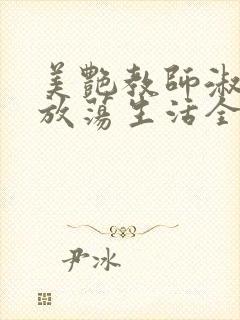 美艷教師淑
放蕩生活全
尹冰